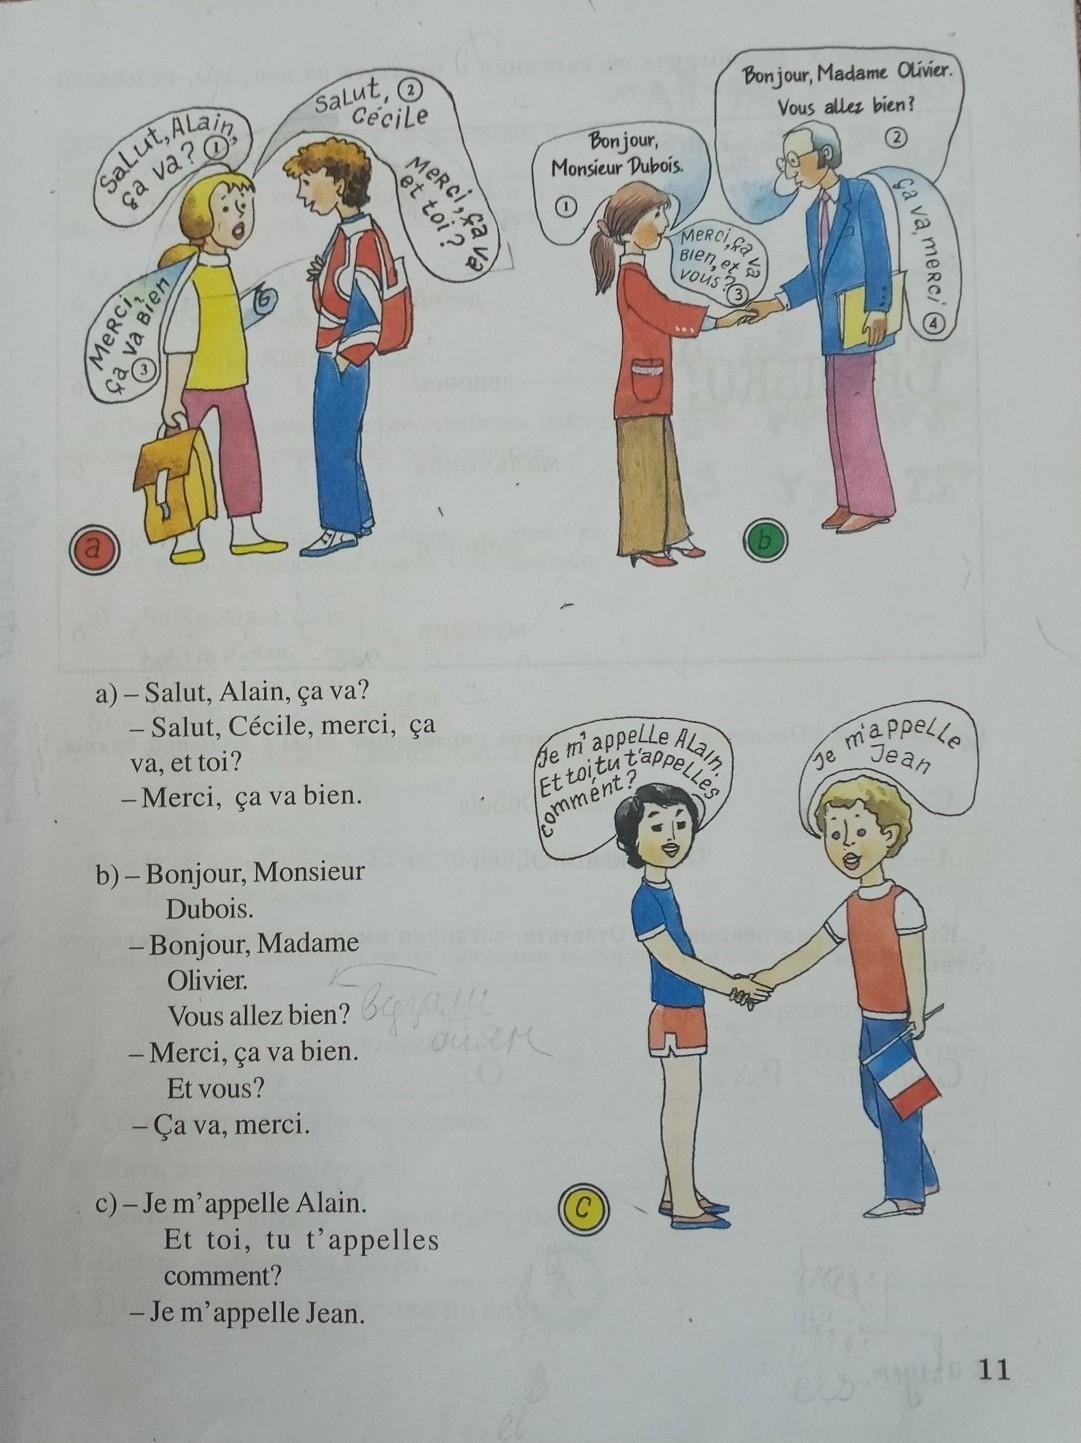 Salut, Alain,
ça va? 1
Salut, 2
Cécile
Merci, ça va
et toi?
Merci,
ça va bien
3
Bonjour,
Monsieur Dubois.
1
Bonjour, Madame Olivier.
Vous allez bien?
2
Merci, ça va
bien, et
vous? 3
ça va, merci 4
a
b
a) – Salut, Alain, ça va?
– Salut, Cécile, merci, ça
va, et toi?
– Merci, ça va bien.
b) – Bonjour, Monsieur
Dubois.
– Bonjour, Madame
Olivier.
Vous allez bien?
– Merci, ça va bien.
Et vous?
– Ça va, merci.
c) – Je m'appelle Alain.
Et toi, tu t'appelles
comment?
– Je m'appelle Jean.
Je m'appelle Alain.
Et toi, tu t'appelles
comment?
Je m'appelle
Jean
c
11